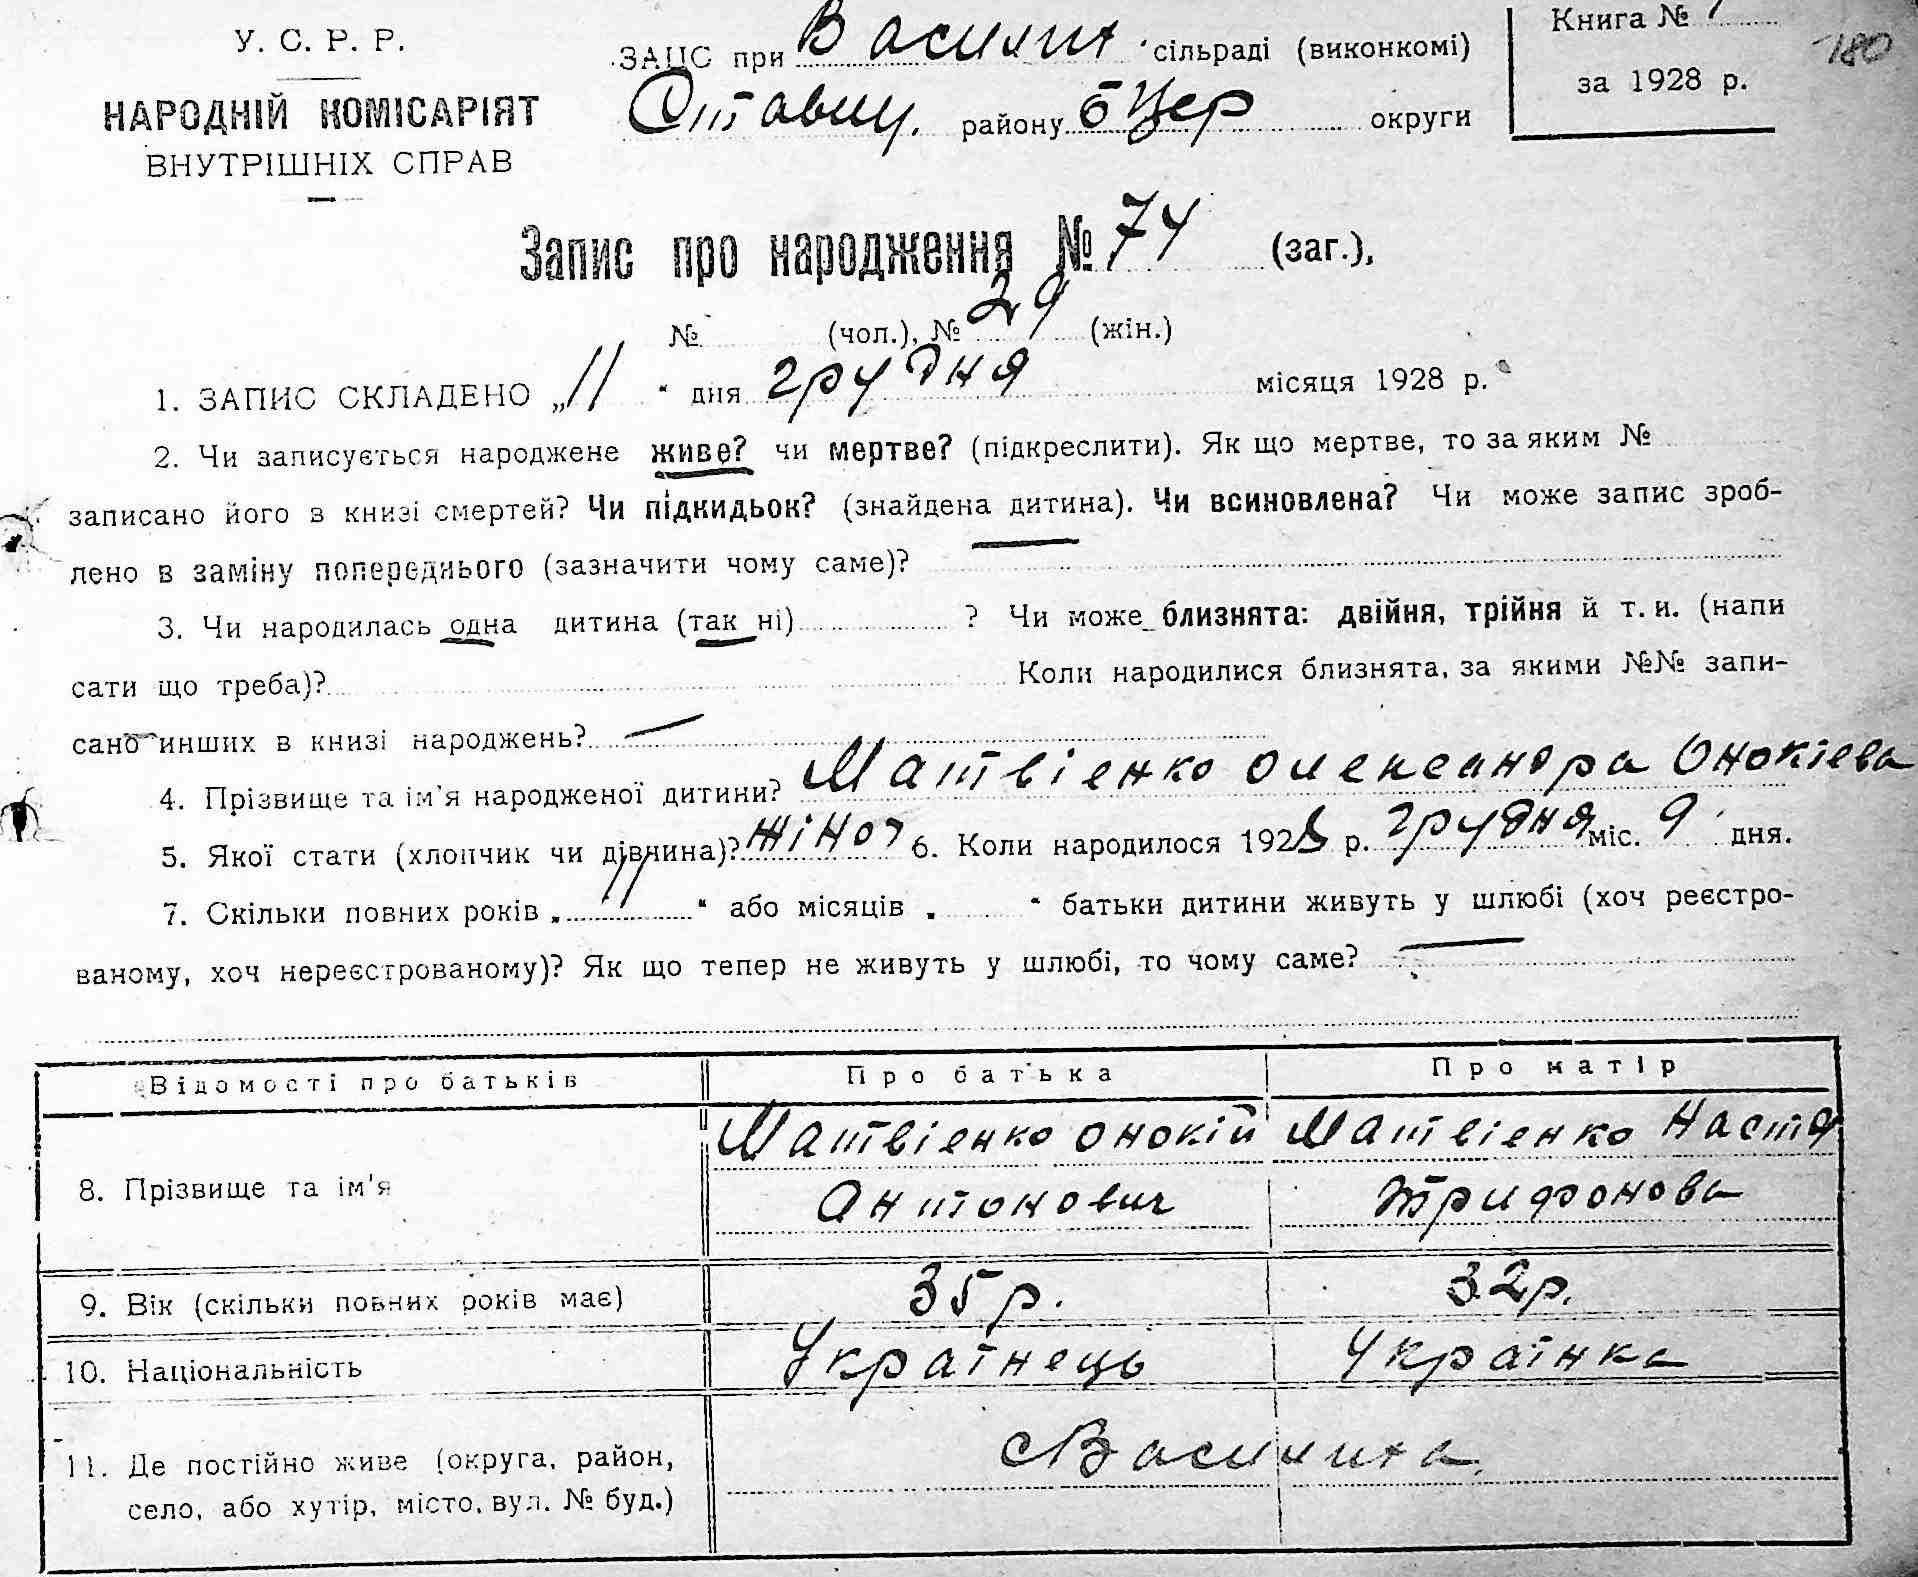 У. С. Р. Р.
НАРОДНІЙ КОМІСАРІЯТ
ВНУТРІШНІХ СПРАВ
ЗАЦС при Василих сільраді (виконкомі)
Ставищ. району б Цер округи
Книга №
за 1928 р.
180
Запис про народження № 74 (заг.),
№ (чол.), № 29 (жін.)
1. ЗАПИС СКЛАДЕНО „11 “ дня грудня місяця 1928 р.
2. Чи записується народжене живе? чи мертве? (підкреслити). Як що мертве, то за яким №
записано його в книзі смертей? Чи підкидьок? (знайдена дитина). Чи всиновлена? Чи може запис зроб-
лено в заміну попереднього (зазначити чому саме)?
3. Чи народилась одна дитина (так ні) ? Чи може близнята: двійня, трійня й т. и. (напи
сати що треба)? Коли народилися близнята, за якими №№ запи-
сано инших в книзі народжень? —
4. Прізвище та ім'я народженої дитини? Матвієнко Олександра Онокієва
5. Якої стати (хлопчик чи дівчина)? жіноч 6. Коли народилося 1928 р. грудня міс. 9 дня.
7. Скільки повних років „ 11 “ або місяців „ “ батьки дитини живуть у шлюбі (хоч реєстро-
ваному, хоч нереєстрованому)? Як що тепер не живуть у шлюбі, то чому саме? —
Відомості про батьків Про батька Про матір
8. Прізвище та ім'я Матвієнко Онокій Антонович Матвієнко Настя Трифонова
9. Вік (скільки повних років має) 35 р. 32 р.
10. Національність Українець Українка
11. Де постійно живе (округа, район,
село, або хутір, місто, вул. № буд.) с Василиха